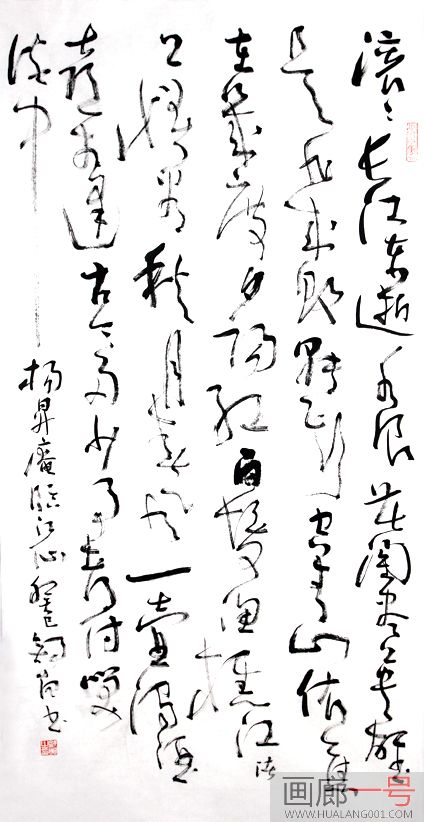 滚滚长江东逝水浪花淘尽英雄
是非成败转头空青山依旧
在几度夕阳红白发渔樵江渚
上惯看秋月春风一壶浊酒
喜相逢古今多少事都付笑
谈中
杨昇庵临江仙癸巳书
画廊一号
WWW.HUALANG001.COM